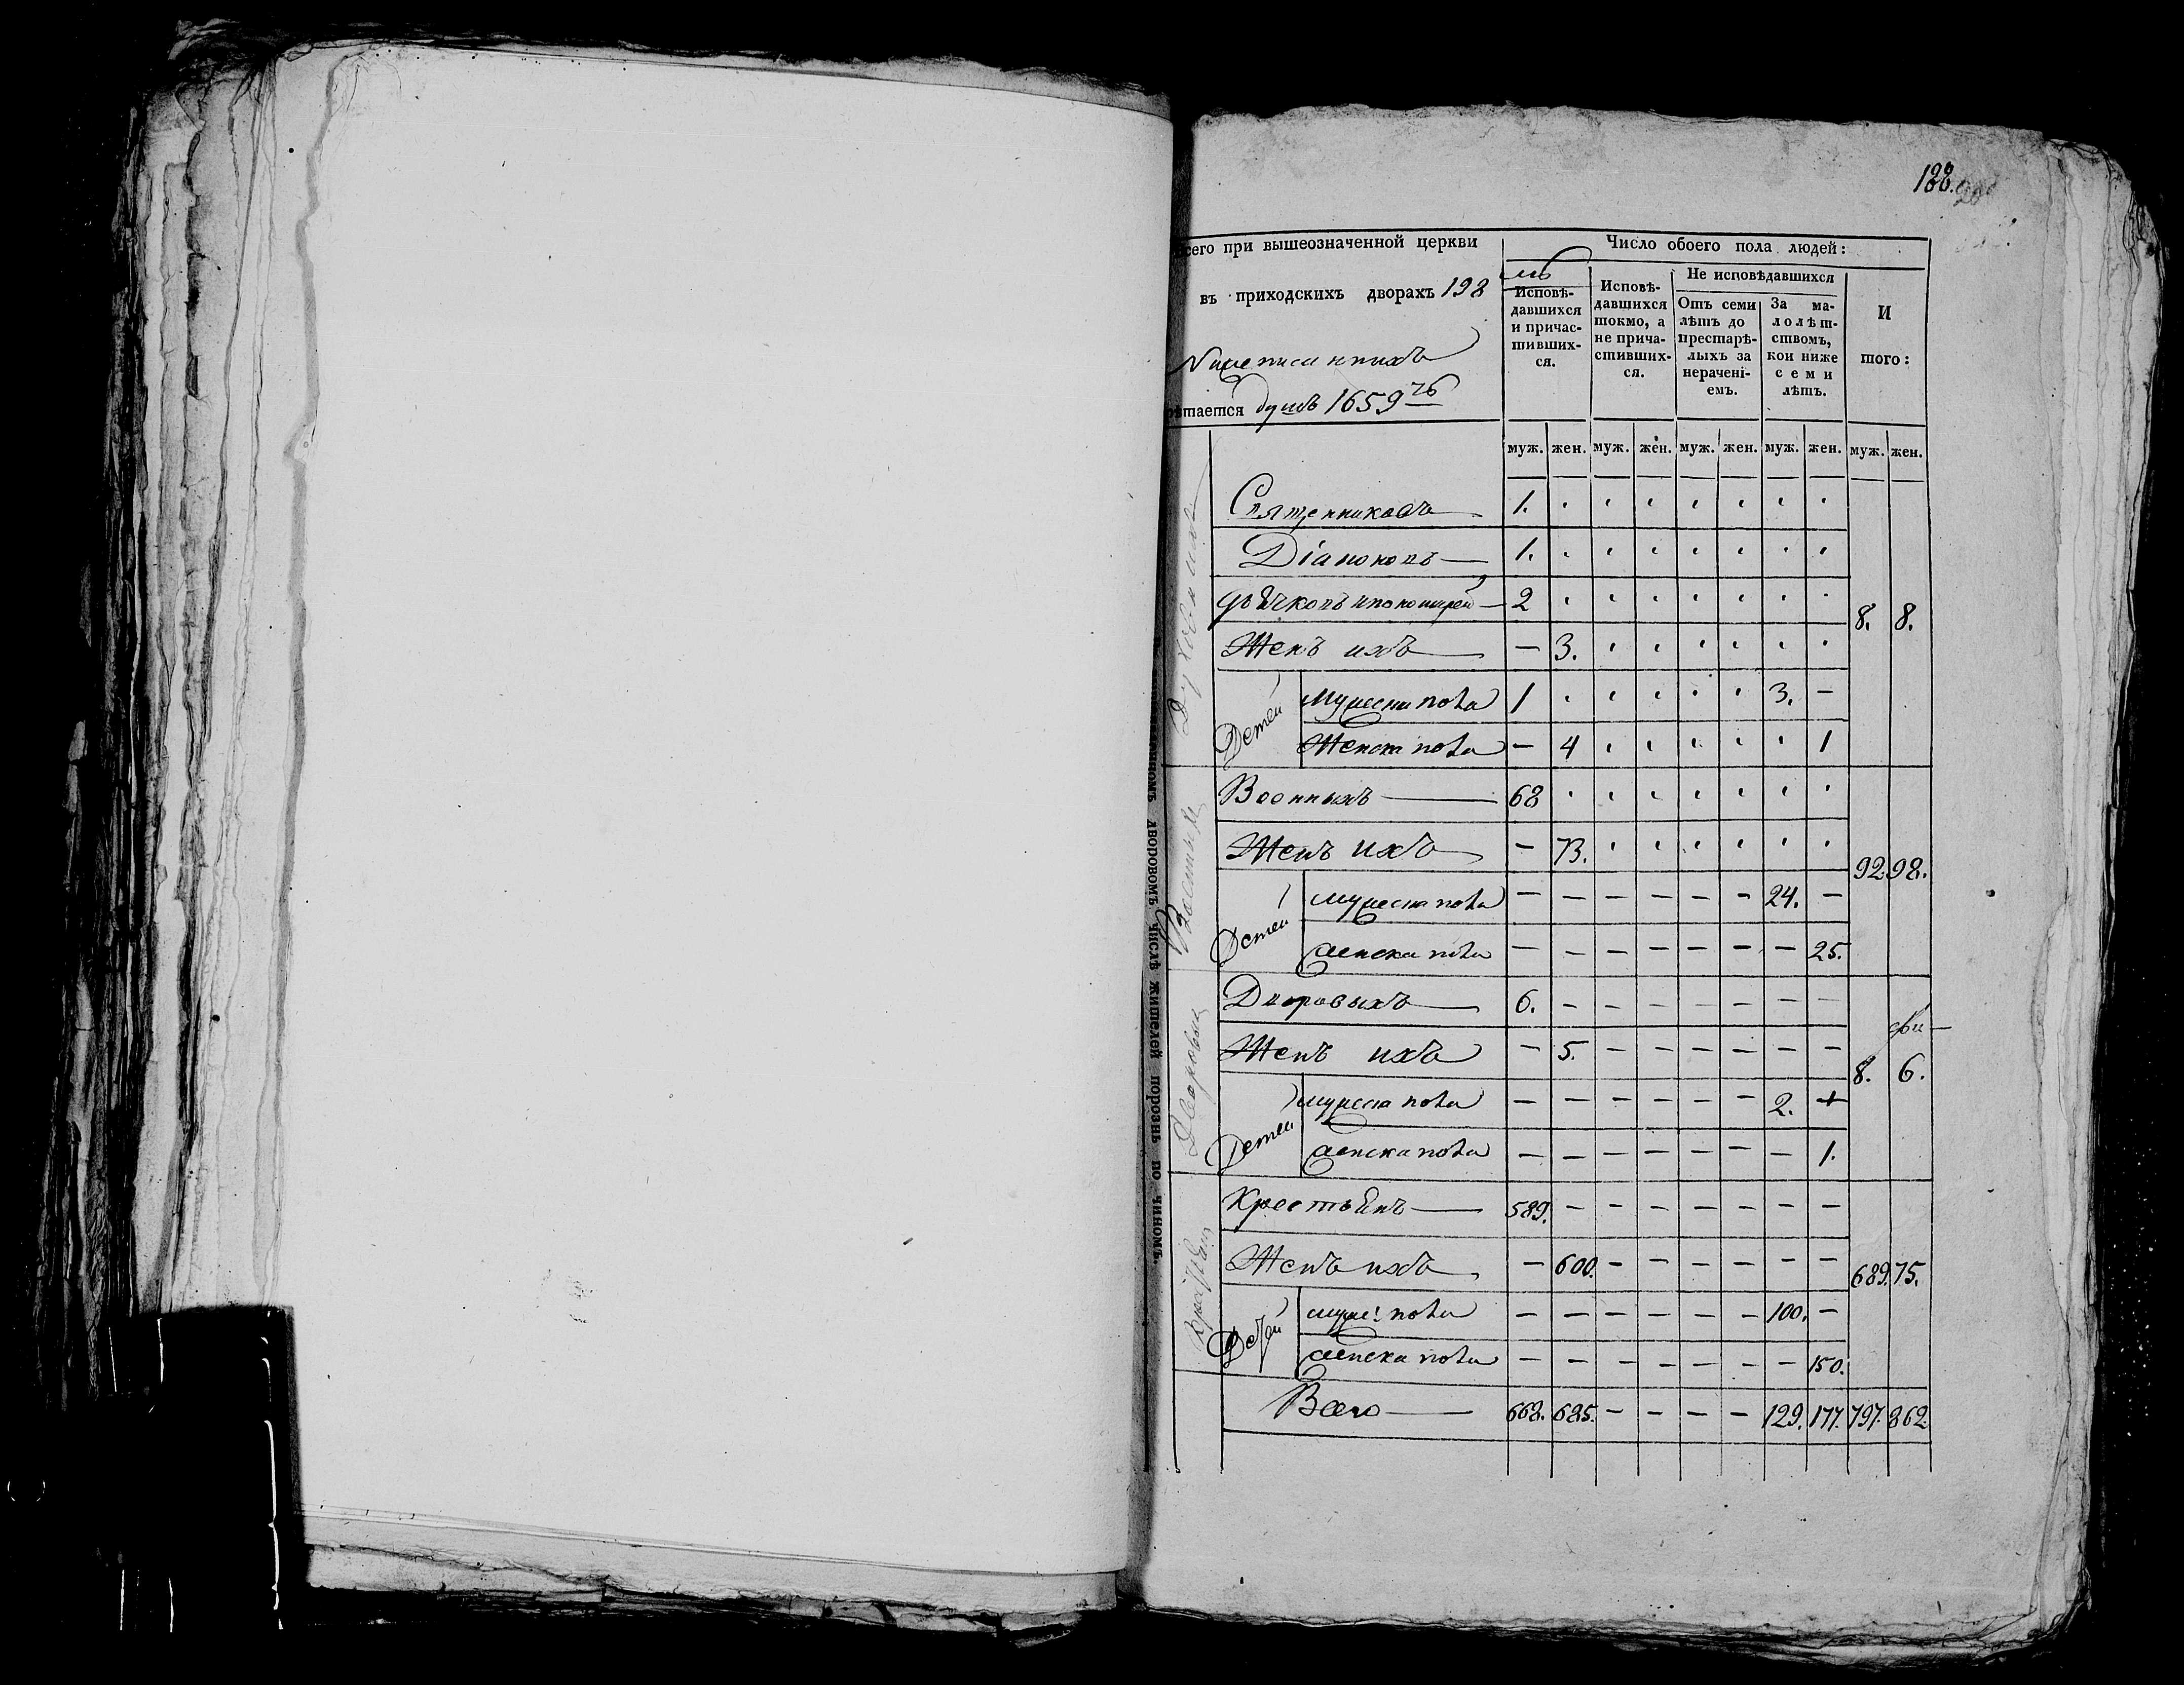 188.
Всего при вышеозначенной церкви
въ приходскихъ дворахъ 198
душъ 1659
Число обоего пола людей:
Исповѣ-
давшихся
и причас-
тивших-
ся.
Исповѣ-
давшихся
токмо, а
не прича-
стивших-
ся.
Не исповѣдавшихся
Отъ семи
лѣтъ до
престарѣ-
лыхъ за
нераченi-
емъ.
За ма-
лолѣт-
ствомъ,
кои ниже
семи
лѣтъ.
И
того:
муж. жен. муж. жен. муж. жен. муж. жен. муж. жен.
Духовныхъ
Священниковъ 1.
Дiаконовъ 1.
2
Женъ ихъ — 3.
8. 8.
Детей
Мужеска пола 1 3. —
Женска пола — 4 1
Военныхъ 68
Женъ ихъ — 73.
92. 98.
Детей
мужеска пола — — — — — — 24. —
женска пола — — — — — — — 25.
Дворовыхъ 6. — — — — — — —
Женъ ихъ — 5. — — — — — —
8. 6.
Детей
мужеска пола — — — — — — 2. +
женска пола — — — — — — — 1.
Крестьянъ 589. — — — — — — —
Женъ ихъ — 600. — — — — — —
689. 75.
Детей
муже: пола — — — — — — 100. —
женска пола — — — — — — — 150.
Всего 668. 685. — — — — 129. 177. 797. 862.
дворовомъ числѣ жителей порознь по чиномъ.